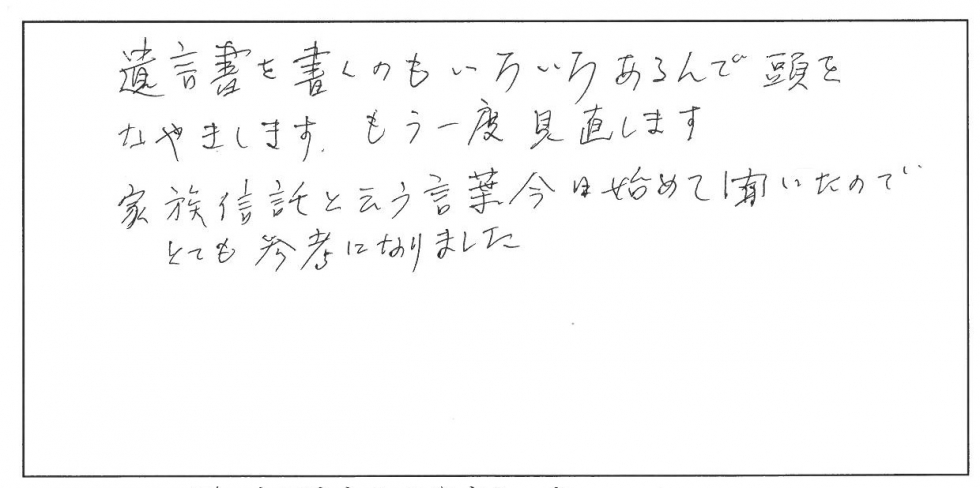 遺言書を書くのもいろいろあるんで頭を
なやまします。もう一度見直します
家族信託と云う言葉今日始めて聞いたので
とても参考になりました